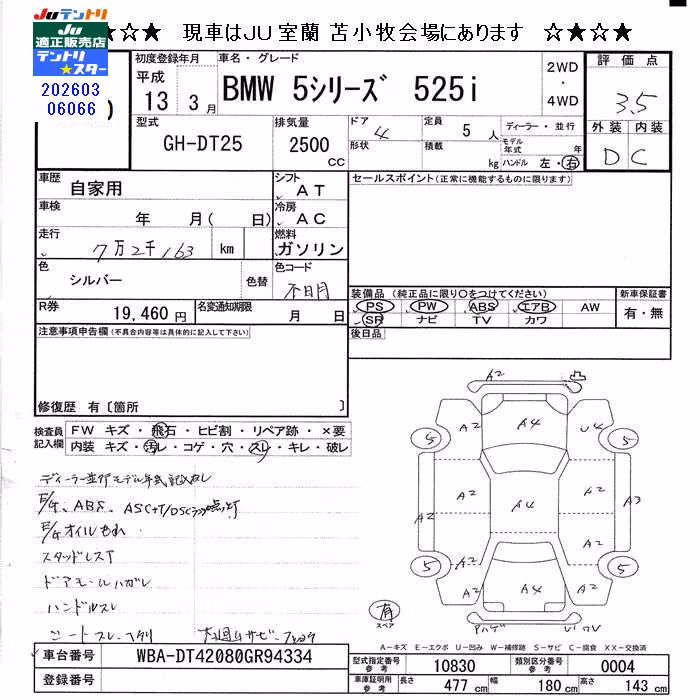 JUテントリ
JU
適正販売店
テントリ
★スター
☆★ 現車はJU室蘭 苫小牧会場にあります ☆★☆★
202603
06066
初度登録年月
平成
13 3月
車名・グレード
BMW 5シリーズ 525i
2WD
・
4WD
評価点
3.5
外装 内装
D C
型式
GH-DT25
排気量
2500
CC
ドア 4
形状
定員 5 人
積載 kg
ディーラー・並行
モデル
年式 年
ハンドル 左・右
車歴
自家用
シフト
AT
セールスポイント(正常に機能するものに限ります)
車検
年 月( 日)
冷房
AC
走行
7万2千163 km
燃料
ガソリン
色
シルバー
色替
色コード
不明
R券
19,460 円
名変通知期限
月 日
装備品 (純正品に限り○をつけてください)
PS PW ABS エアB AW
SR ナビ TV カワ
新車保証書
有・無
注意事項申告欄(不具合内容等は具体的に記入して下さい)
後日品
修復歴 有〔箇所 〕
検査員
記入欄
FW キズ・飛石・ヒビ割・リペア跡・×要
内装 キズ・汚レ・コゲ・穴・スレ・キレ・破レ
ディーラー並行モデル年式記入なし
E/G、ABS、ASC+T/DSCランプ点灯
E/Gオイルもれ
スタッドレスT
ドアモールハガレ
ハンドルスレ
シートスレ・ヘタリ
A2
A4
A2
U4
5
5
A2
A2
A4
A2
A3
A2
A2
5
5
A4
有
スペア
A-キズ E-エクボ U-凹み W-補修跡 S-サビ C-腐食 XX-交換済
車台番号
WBA-DT42080GR94334
登録番号
型式指定番号
参考
10830
類別区分番号
参考
0004
車庫証明用
参考
長さ 477 cm 幅 180 cm 高さ 143 cm